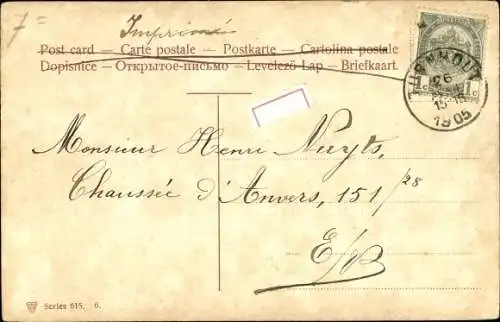 7=
Imprimé
Post card — Carte postale — Postkarte — Cartolina postale
Dopisnice — Открытое-письмо — Levelező Lap — Briefkaart.
TURNHOUT
26
15-16
1905
1c 1c
Monsieur Henri Nuyts,
Chaussée d'Anvers, 151/28
E/B
Series 615. 6.